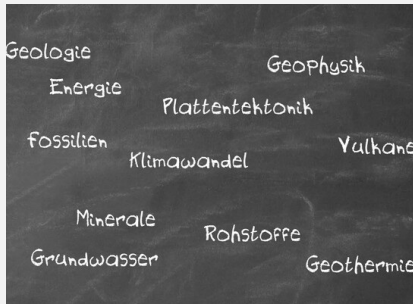 Geologie
Geophysik
Energie
Plattentektonik
Fossilien
Vulkane
Klimawandel
Minerale
Rohstoffe
Grundwasser
Geothermie